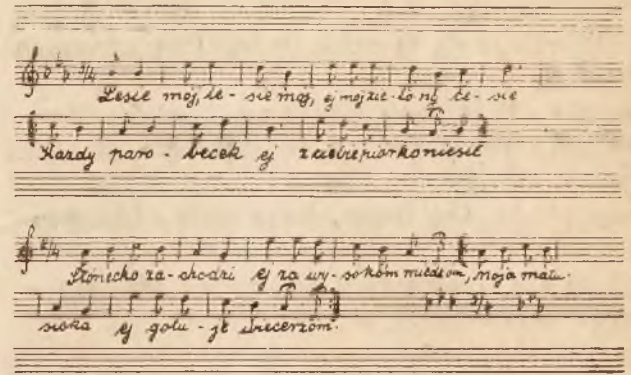 3/4
Lesie mój, le - sie mój, ej mój zie - lo ny le - sie
Kazdy paro - becek ej z ciebie piorko niesie
3/4
Słonecko za - chodzi ej za wy - sokóm miedzom, moja matu -
sicka ej gotu - je wiecerzóm.
3/4